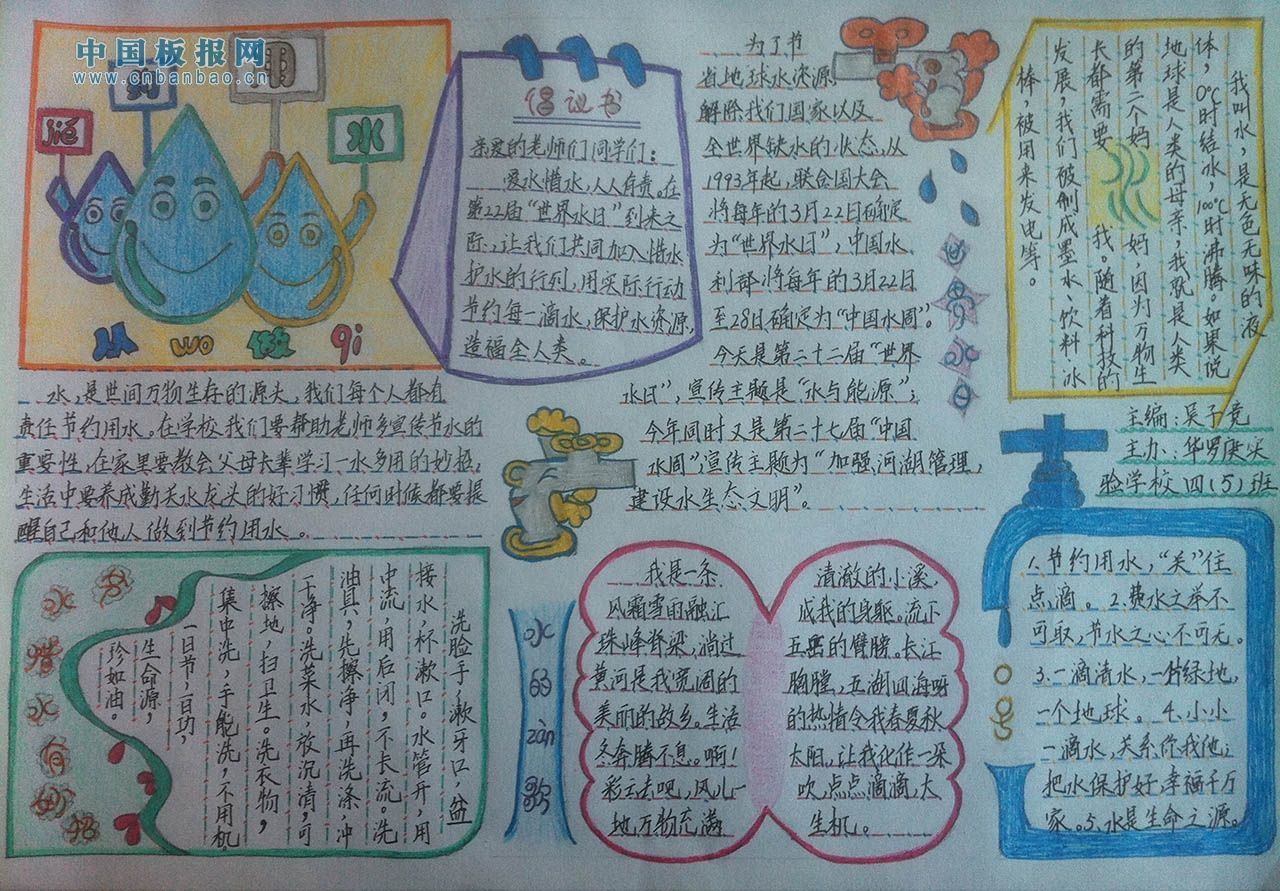 中国板报网
www.cnbanbao.cn
jié
约
用
水
从
wo
做
qi
倡议书
亲爱的老师们同学们：
爱水惜水，人人有责。在
第22届“世界水日”到来之
际，让我们共同加入惜水
护水的行列，用实际行动
节约每一滴水，保护水资源，
造福全人类。
为了节
省地球水资源，
解除我们国家以及
全世界缺水的状态，从
1993年起，联合国大会
将每年的3月22日确定
为“世界水日”，中国水
利部将每年的3月22日
至28日确定为“中国水周”。
今天是第二十二届“世界
水日”，宣传主题是“水与能源”；
今年同时又是第二十七届“中国
水周”，宣传主题为“加强河湖管理，
建设水生态文明”。
世界水日
我叫水，是无色无味的液
体，0℃时结水，100℃时沸腾。如果说
地球是人类的母亲，我就是人类
的第二个妈妈，因为万物生
长都需要我。随着科技的
发展，我们被制成墨水、饮料、冰
棒，被用来发电等。
主编：吴子竞
主办：华罗庚实
验学校四(5)班
水，是世间万物生存的源头，我们每个人都有
责任节约用水。在学校我们要帮助老师多宣传节水的
重要性，在家里要教会父母长辈学习一水多用的妙招，
生活中要养成勤关水龙头的好习惯，任何时候都要提
醒自己和他人做到节约用水。
节水惜水有妙招
洗脸手，漱牙口，盆
接水，杯漱口。水管开，用
中流，用后闭，不长流。洗
油具，先擦净，再洗涤，冲
干净。洗菜水，放沉清，可
擦地，扫卫生。洗衣物，
集中洗，手能洗，不用机。
一日节，一日功，
生命源，
珍如油。
水的zàn歌
我是一条
风霜雪雨融汇
珠峰脊梁，淌过
黄河是我宽阔的
美丽的故乡。生活
冬奔腾不息。啊！
彩云去吧，风儿一
地，万物充满
清澈的小溪，
成我的身躯。流下
的臂膀。长江
胸膛，五湖四海呀
的热情令我春夏秋
太阳，让我化作一朵
吹，点点滴滴，大
生机。
口号
1.节约用水，“关”住
点滴。2.费水之举不
可取，节水之心不可无。
3.一滴清水，一片绿地，
一个地球。4.小小
一滴水，关系你我他；
把水保护好，幸福千万
家。5.水是生命之源。